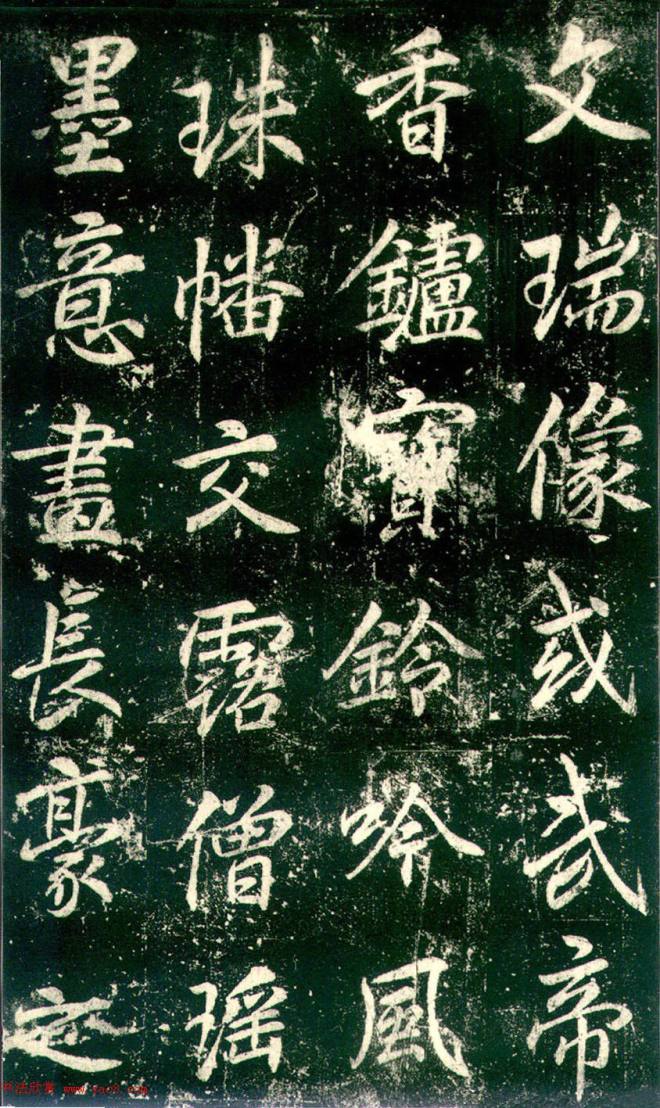 文瑞像或武帝
香鑪寶鈴吟風
珠幡交露僧瑶
墨意畫長豪
书法欣赏